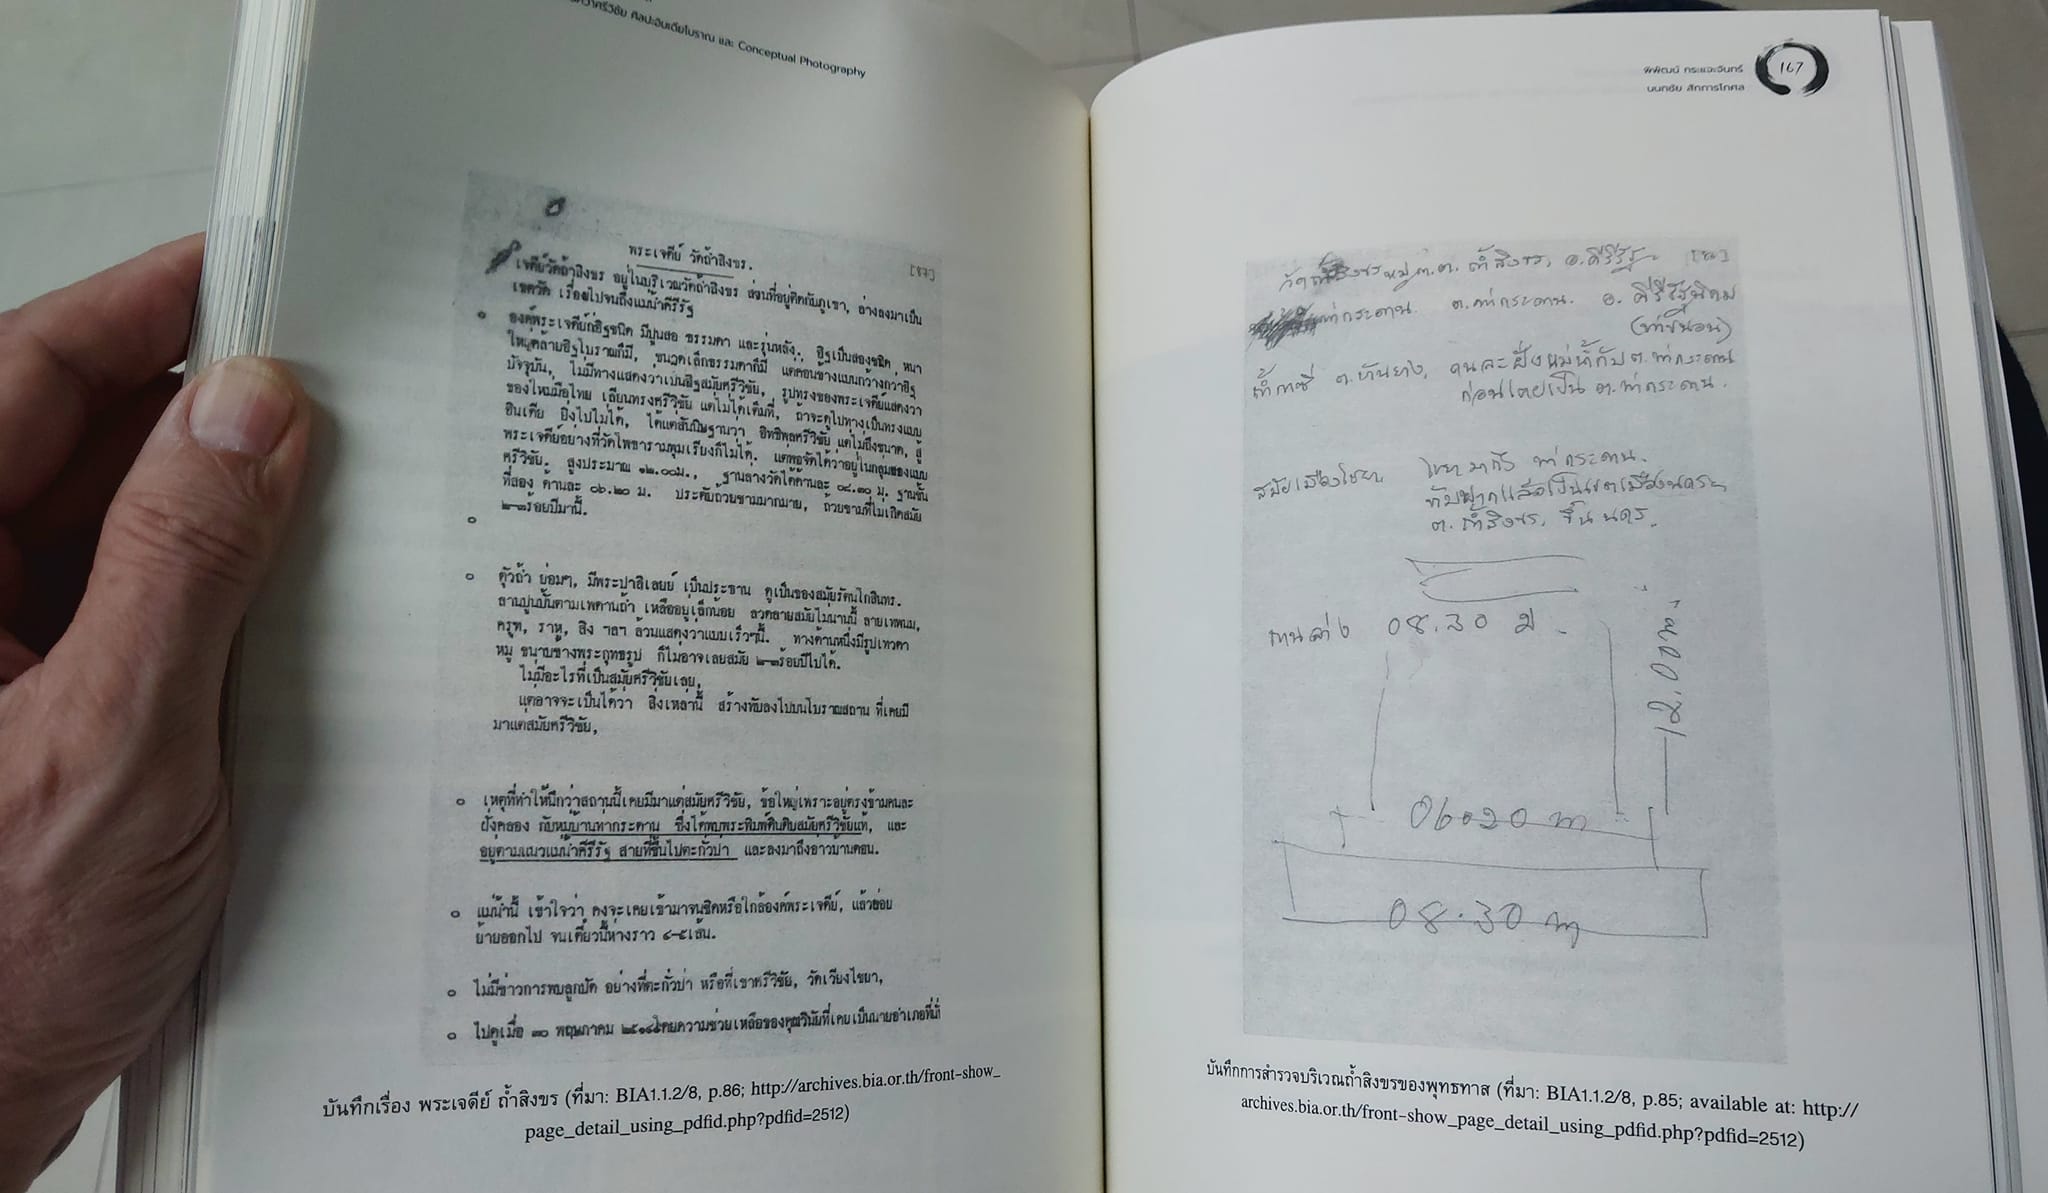 ศรีวิชัย ศิลปะอินเดียโบราณ และ Conceptual Photography
พระเจดีย์ วัดถ้ำสิงขร.
[78]
เจดีย์วัดถ้ำสิงขร อยู่ในบริเวณวัดถ้ำสิงขร ส่วนที่อยู่ติดกับภูเขา, ล่างลงมาเป็น
เขตวัด เรื่อยไปจนถึงแม่น้ำคีรีรัฐ
๐ องค์พระเจดีย์ก่ออิฐชนิด มีปูนสอ ธรรมดา และรุ่นหลัง. อิฐเป็นสองชนิด หนา
ใหญ่คล้ายอิฐโบราณก็มี, ขนาดเล็กธรรมดาก็มี แต่ค่อนข้างแบนกว้างกว่าอิฐ
ปัจจุบัน, ไม่มีทางแสดงว่าเป็นอิฐสมัยศรีวิชัย, รูปทรงของพระเจดีย์แสดงว่า
ของใหม่มือไทย เลียนทรงศรีวิชัย แต่ไม่ได้เต็มที่, ถ้าจะดูไปทางเป็นทรงแบบ
อินเดีย ยิ่งไปไม่ได้, ได้แต่สันนิษฐานว่า อิทธิพลศรีวิชัย แต่ไม่ถึงขนาด, สู้
พระเจดีย์อย่างที่วัดโพธารามพุมเรียงก็ไม่ได้. แต่พอจัดได้ว่าอยู่ในกลุ่มของแบบ
ศรีวิชัย. สูงประมาณ ๑๒.๐๐ม., ฐานล่างวัดได้ด้านละ ๐๘.๓๐ ม. ฐานชั้น
ที่สอง ด้านละ ๐๖.๒๐ ม. ประดับถ้วยชามมากมาย, ถ้วยชามที่ไม่เกิดสมัย
๒-๓ร้อยปีมานี้.
๐
๐ ตัวถ้ำ ย่อมๆ, มีพระปาลิเลยย์ เป็นประธาน ดูเป็นของสมัยรัตนโกสินทร.
ลายปูนปั้นตามเพดานถ้ำ เหลืออยู่เล็กน้อย ลวดลายสมัยไม่นานนี้ ลายเทพนม,
ครุฑ, ราหู, สิง ฯลฯ ล้วนแสดงว่าแบบเร็วๆนี้. ทางด้านหนึ่งมีรูปเทวดา
หมู่ ขนาบข้างพระพุทธรูป ก็ไม่อาจเลยสมัย ๒-๓ร้อยปีไปได้.
ไม่มีอะไรที่เป็นสมัยศรีวิชัยเลย,
แต่อาจจะเป็นได้ว่า สิ่งเหล่านี้ สร้างทับลงไปบนโบราณสถาน ที่เคยมี
มาแต่สมัยศรีวิชัย,
๐ เหตุที่ทำให้นึกว่าสถานนี้เคยมีมาแต่สมัยศรีวิชัย, ข้อใหญ่เพราะอยู่ตรงข้ามคนละ
ฝั่งคลอง กับหมู่บ้านท่ากระดาน ซึ่งได้พบพระพิมพ์ดินดิบสมัยศรีวิชัยแท้, และ
อยู่ตามแนวแม่น้ำคีรีรัฐ สายที่ขึ้นไปตะกั่วป่า และลงมาถึงอ่าวบ้านดอน.
๐ แม่น้ำนี้ เข้าใจว่า คงจะเคยเข้ามาจนชิดหรือใกล้องค์พระเจดีย์, แล้วย่อย
ย้ายออกไป จนเดี๋ยวนี้ห่างราว ๔-๕เส้น.
๐ ไม่มีข่าวการพบลูกปัด อย่างที่ตะกั่วป่า หรือที่เขาศรีวิชัย, วัดเวียงไชยา,
๐ ไปดูเมื่อ ๓๐ พฤษภาคม ๒๕๑๔โดยความช่วยเหลือของคุณวินัยที่เคยเป็นนายอำเภอที่นั่
บันทึกเรื่อง พระเจดีย์ ถ้ำสิงขร (ที่มา: BIA1.1.2/8, p.86; http://archives.bia.or.th/front-show_
page_detail_using_pdfid.php?pdfid=2512)
พิพัฒน์ กระแจะจันทร์
นนทชัย สักการโกศล
167
ต. ถ้ำสิงขร, อ.คีรีรัฐ
ท่ากระดาน. ต.ท่ากระดาน. อ. คีรีรัฐนิคม
(ท่าขนอน)
คนละฝั่งแม่น้ำกับ ต.ท่ากระดาน
ก่อนเคยเป็น ต.ท่ากระดาน.
สมัยเมืองไชยา ท่ากระดาน.
ต. ถ้ำสิงขร, ขึ้น นคร.
ฐานล่าง 08.30 ม.
12.00
06.20 m
08.30 m
บันทึกการสำรวจบริเวณถ้ำสิงขรของพุทธทาส (ที่มา: BIA1.1.2/8, p.85; available at: http://
archives.bia.or.th/front-show_page_detail_using_pdfid.php?pdfid=2512)